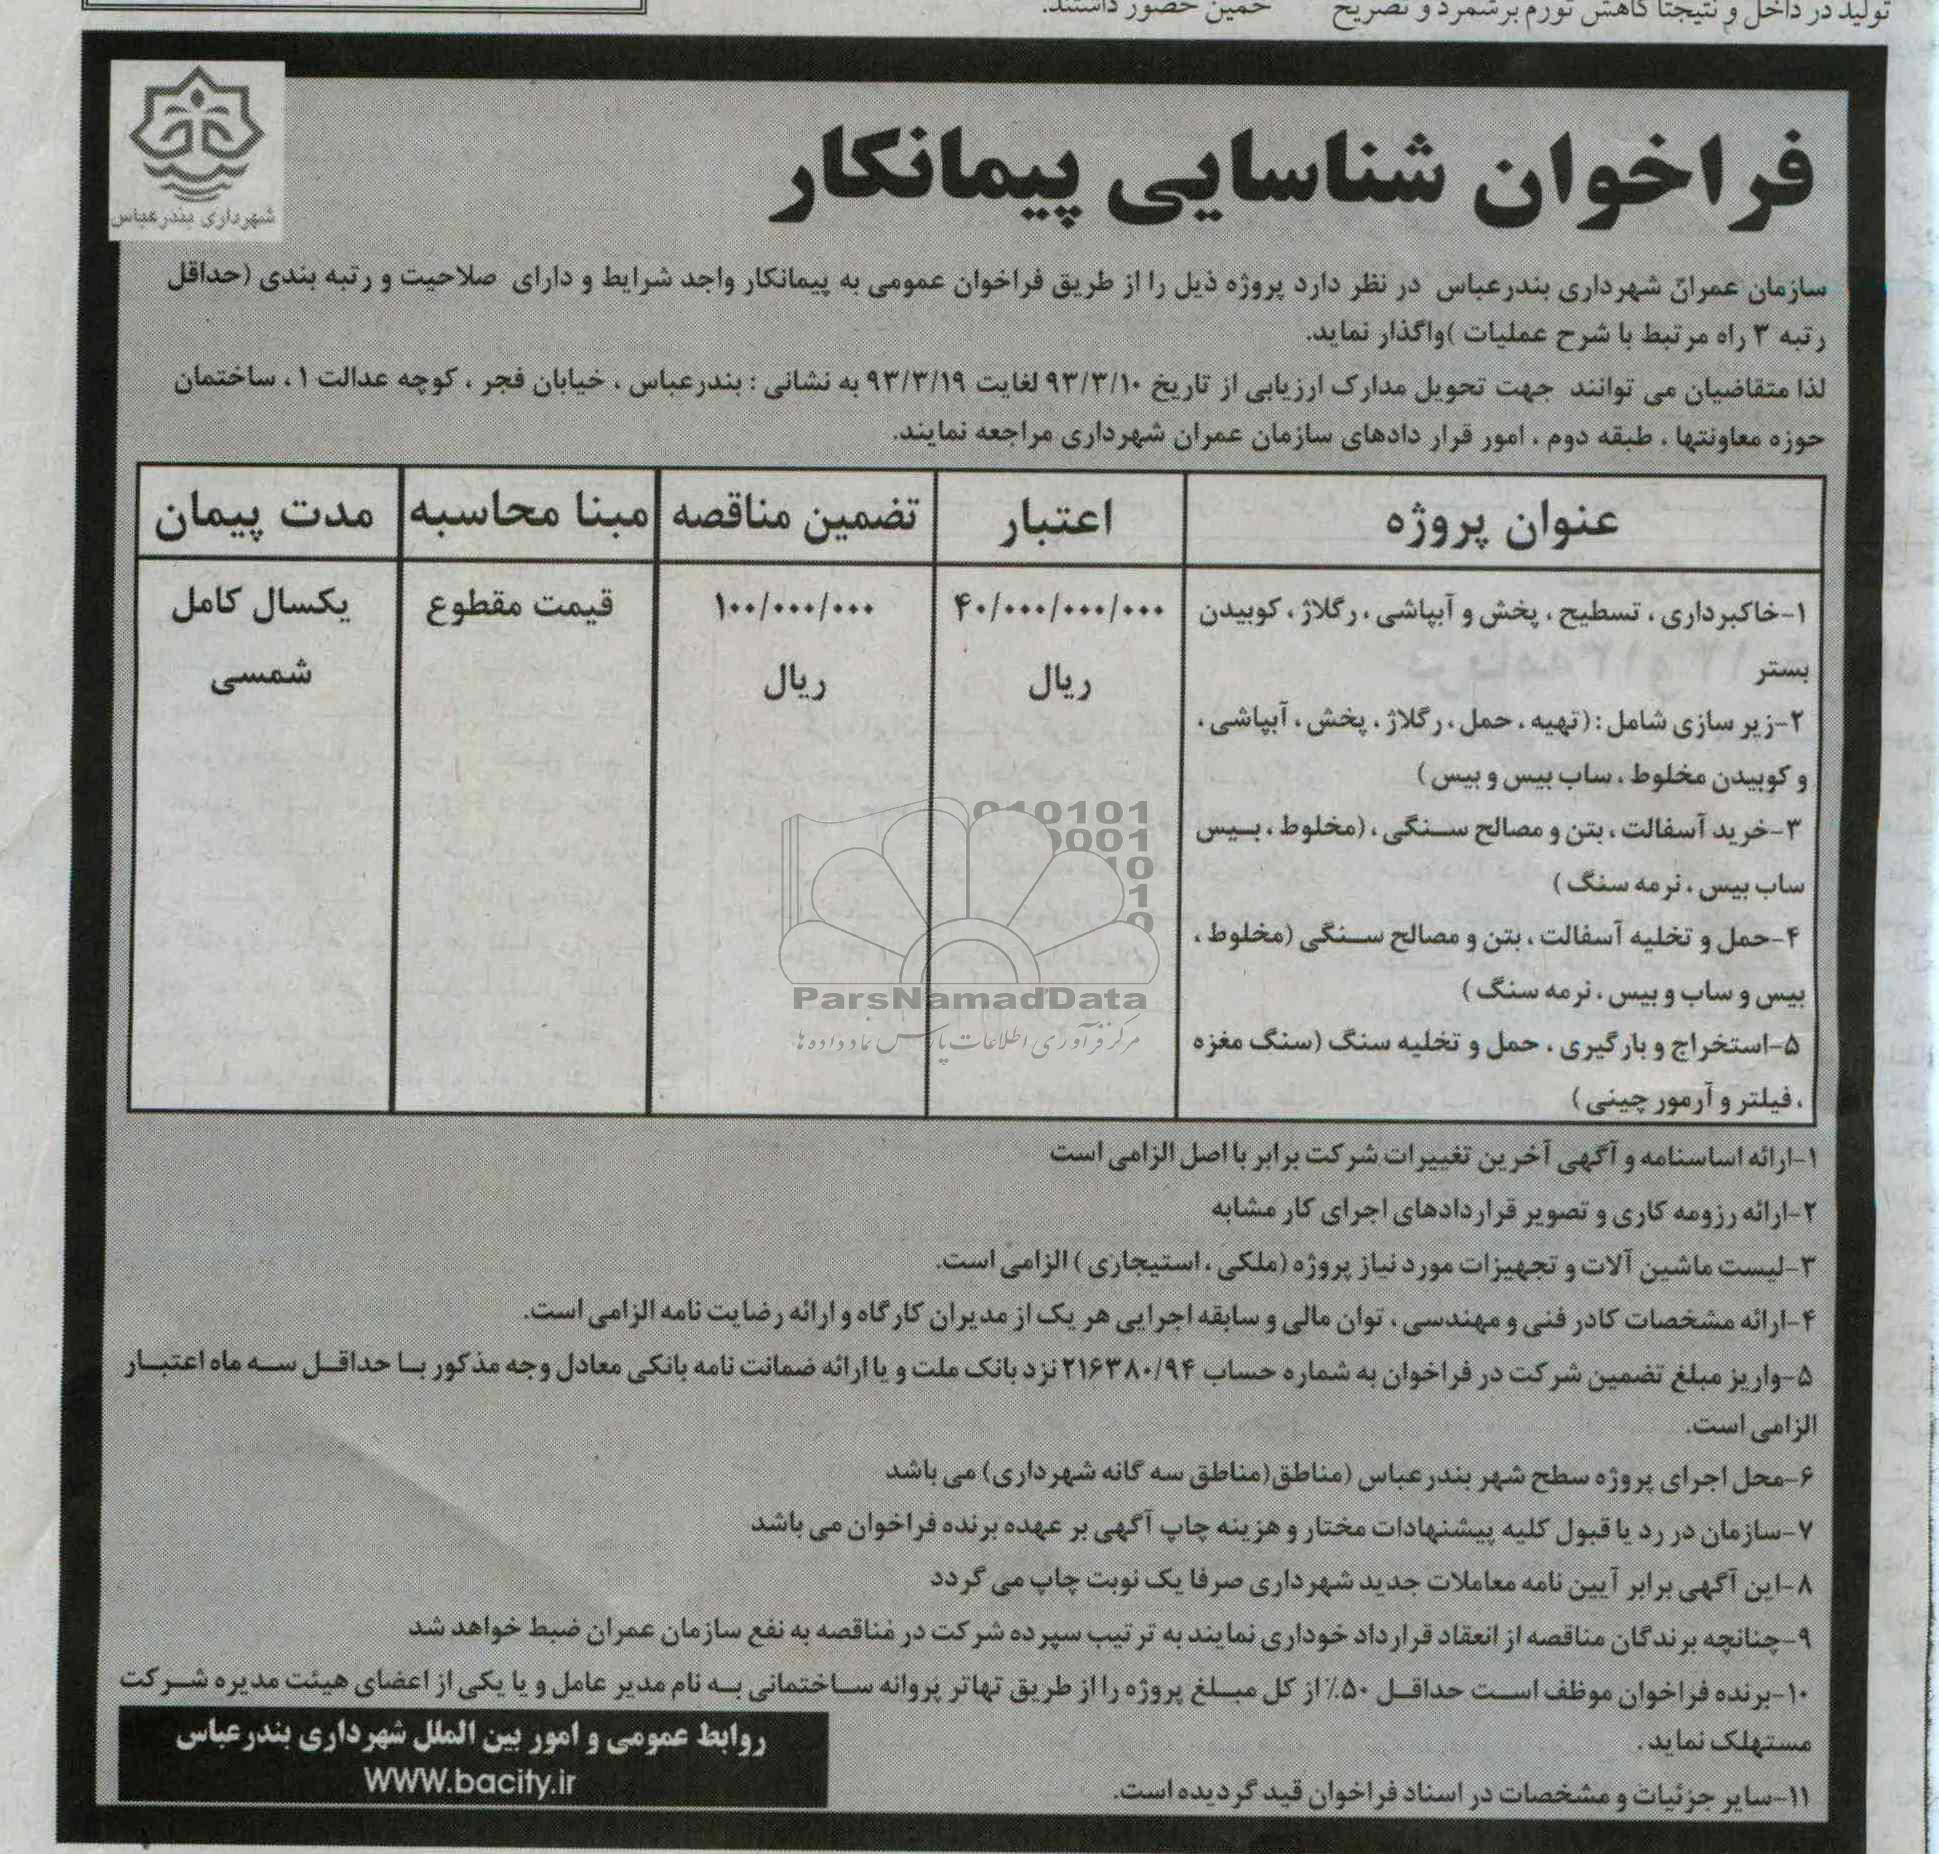 تولید در داخل و نتیجتا کاهش تورم برشمرد و تصریح
خمین حضور داشتند.
شهرداری بندرعباس
فراخوان شناسایی پیمانکار
سازمان عمران شهرداری بندرعباس در نظر دارد پروژه ذیل را از طریق فراخوان عمومی به پیمانکار واجد شرایط و دارای صلاحیت و رتبه بندی (حداقل
رتبه ۳ راه مرتبط با شرح عملیات )واگذار نماید.
لذا متقاضیان می توانند جهت تحویل مدارک ارزیابی از تاریخ ۹۳/۳/۱۰ لغایت ۹۳/۳/۱۹ به نشانی : بندرعباس ، خیابان فجر ، کوچه عدالت ۱ ، ساختمان
حوزه معاونتها ، طبقه دوم ، امور قرار دادهای سازمان عمران شهرداری مراجعه نمایند.
عنوان پروژه
اعتبار
تضمین مناقصه
مبنا محاسبه
مدت پیمان
۱-خاکبرداری ، تسطیح ، پخش و آبپاشی ، رگلاژ ، کوبیدن
بستر
۲-زیر سازی شامل : (تهیه ، حمل ، رگلاژ ، پخش ، آبپاشی ،
و کوبیدن مخلوط ، ساب بیس و بیس )
۳-خرید آسفالت ، بتن و مصالح سنگی ، (مخلوط ، بیس
ساب بیس ، نرمه سنگ )
۴-حمل و تخلیه آسفالت ، بتن و مصالح سنگی (مخلوط ،
بیس و ساب و بیس ، نرمه سنگ )
۵-استخراج و بارگیری ، حمل و تخلیه سنگ (سنگ مغزه
، فیلتر و آرمور چینی )
۴۰/۰۰۰/۰۰۰/۰۰۰
ریال
۱۰۰/۰۰۰/۰۰۰
ریال
قیمت مقطوع
یکسال کامل
شمسی
010101
0001
10
1
0
ParsNamadData
مرکز فرآوری اطلاعات پارس نماد داده ها
۱-ارائه اساسنامه و آگهی آخرین تغییرات شرکت برابر با اصل الزامی است
۲-ارائه رزومه کاری و تصویر قراردادهای اجرای کار مشابه
۳-لیست ماشین آلات و تجهیزات مورد نیاز پروژه (ملکی ، استیجاری ) الزامی است.
۴-ارائه مشخصات کادر فنی و مهندسی ، توان مالی و سابقه اجرایی هر یک از مدیران کارگاه و ارائه رضایت نامه الزامی است.
۵-واریز مبلغ تضمین شرکت در فراخوان به شماره حساب ۲۱۶۳۸۰/۹۴ نزد بانک ملت و یا ارائه ضمانت نامه بانکی معادل وجه مذکور با حداقل سه ماه اعتبار
الزامی است.
۶-محل اجرای پروژه سطح شهر بندرعباس (مناطق(مناطق سه گانه شهرداری) می باشد
۷-سازمان در رد یا قبول کلیه پیشنهادات مختار و هزینه چاپ آگهی بر عهده برنده فراخوان می باشد
۸-این آگهی برابر آیین نامه معاملات جدید شهرداری صرفا یک نوبت چاپ می گردد
۹-چنانچه برندگان مناقصه از انعقاد قرارداد خوداری نمایند به ترتیب سپرده شرکت در مناقصه به نفع سازمان عمران ضبط خواهد شد
۱۰-برنده فراخوان موظف است حداقل ۵۰٪ از کل مبلغ پروژه را از طریق تهاتر پروانه ساختمانی به نام مدیر عامل و یا یکی از اعضای هیئت مدیره شرکت
مستهلک نماید.
۱۱-سایر جزئیات و مشخصات در اسناد فراخوان قید گردیده است.
روابط عمومی و امور بین الملل شهرداری بندرعباس
WWW.bacity.ir